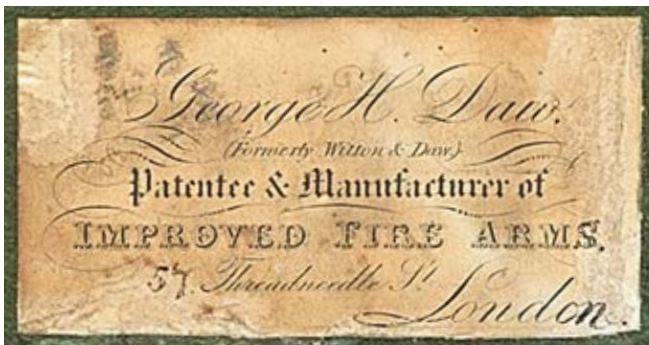 George H. Daw.
(Formerly Witton & Daw.)
Patentee & Manufacturer of
IMPROVED FIRE ARMS.
57, Threadneedle St
London.